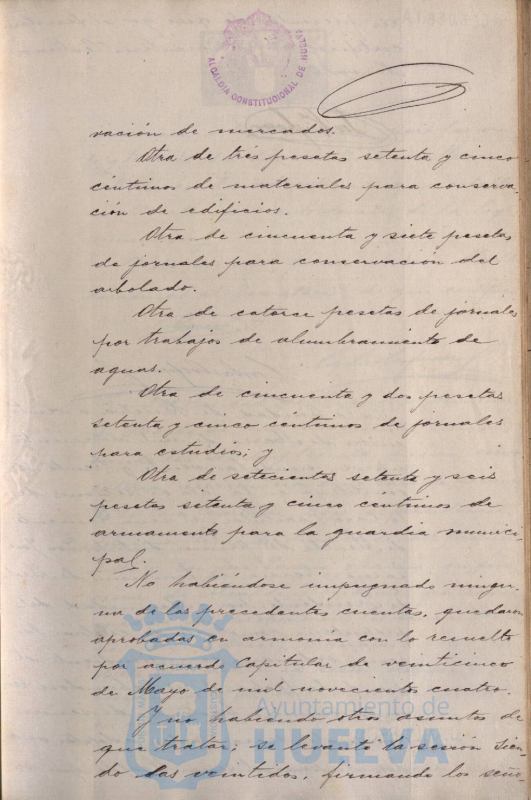 ALCALDÍA CONSTITUCIONAL DE HUELVA
vación de mercados.
Otra de tres pesetas setenta y cinco
céntimos de materiales para conserva-
ción de edificios.
Otra de cincuenta y siete pesetas
de jornales para conservación del
arbolado.
Otra de catorce pesetas de jornales
por trabajos de alumbramiento de
aguas.
Otra de cincuenta y dos pesetas
setenta y cinco céntimos de jornales
para estudios; y
Otra de setecientas setenta y seis
pesetas setenta y cinco céntimos de
armamento para la guardia munici-
pal.
No habiéndose impugnado ningu-
na de las precedentes cuentas, quedaron
aprobadas en armonía con lo resuelto
por acuerdo Capitular de veinticinco
de Mayo de mil novecientos cuatro.
Y no habiendo otros asuntos de
que tratar; se levantó la sesión sien-
do las veintidos, firmando los seño-
Ayuntamiento de
HUELVA